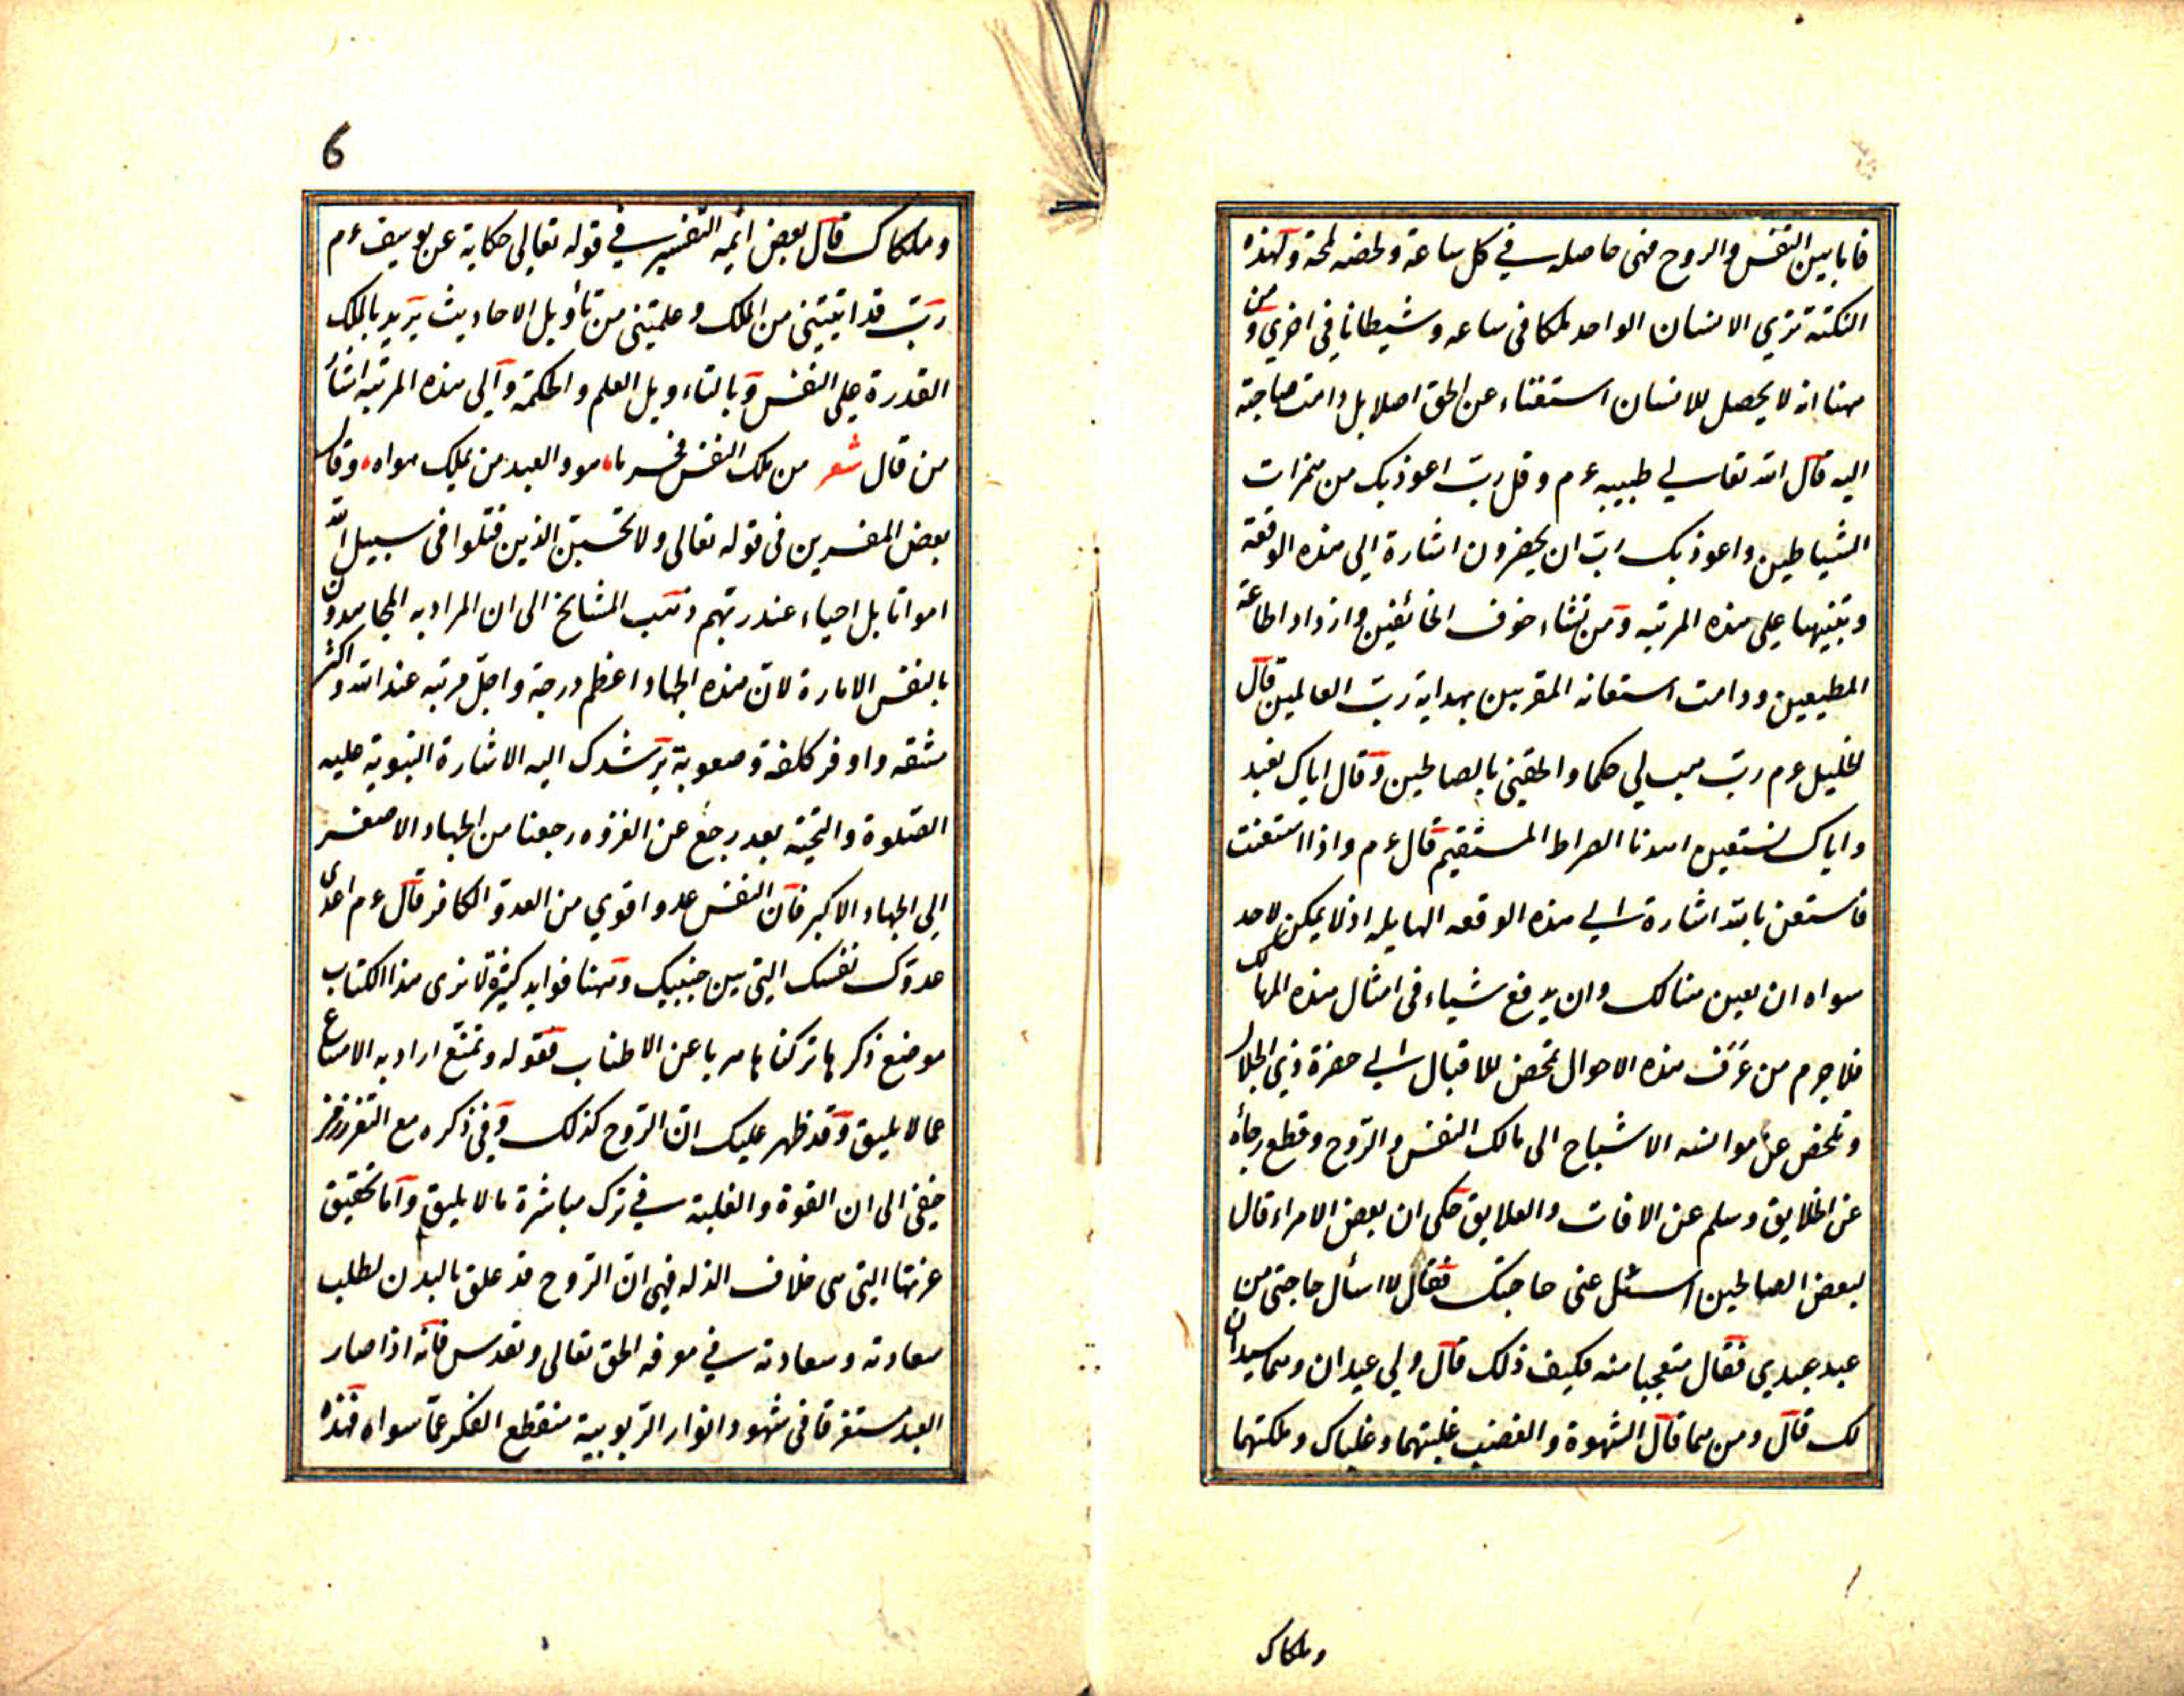 فاما بين النفس والروح فهى حاصله في كل ساعة ولحضه لمحة ولهذه
النكتة ترى الانسان الواحد ملكا فى ساعه وشيطانا في اخرى ومن
ههنا انه لا يحصل للانسان استغناء عن الحق اصلا بل دامت حاجته
اليه قال الله تعالى لحبيبه ءم وقل رب اعوذ بك من همزات
الشياطين واعوذ بك رب ان يحضرون اشارة الى هذه الوقعة
وتنبيها على هذه المرتبه ومن نشاء خوف الخائفين وازداد اطاعة
المطيعين ودامت استعانه المقربين بهداية رب العالمين قال
الخليل ءم رب هب لي حكما والحقني بالصالحين وقال اياك نعبد
واياك نستعين اهدنا الصراط المستقيم قال ءم واذا استعنت
فاستعن بالله اشارة الى هذه الوقعه الهايله اذ لا يمكن لاحد
سواه ان يعين هنالك وان يدفع شياء فى امثال هذه المهالك
فلا جرم من عرف هذه الاحوال تمحض للاقبال الى حضرة ذي الجلال
وتمحض عن موانسه الاشباح الى مالك النفس والروح وقطع رجأه
عن الخلايق وسلم عن الافات والعلايق حكى ان بعض الامراء قال
لبعض الصالحين اسئل عنى حاجتك فقال لا اسأل حاجتى من
عبد عبدي فقال متعجبا منه فكيف ذلك قال ولي عبدان وهما سيدان
لك قال ومن هما قال الشهوة والغضب غلبتهما وغلباك وملكتهما
وملكاك
6
وملكاك قال بعض ائمه التفسير في قوله تعالى حكاية عن يوسف ءم
رب قد اتيتنى من الملك وعلمتنى من تأويل الاحاديث يريد بالملك
القدرة على النفس وبالتاءويل العلم والحكمة والى هذه المرتبه اشأ
من قال شعر من ملك النفس فحر ما هو والعبد من يملك هواه وقال
بعض المفسرين فى قوله تعالى ولا تحسبن الذين قتلوا فى سبيل الله
امواتا بل احياء عند ربهم ذهب المشايخ الى ان المراد به المجاهدون
بالنفس الامارة لان هذه الجهاد اعظم درجة واجل مرتبه عند الله واكثر
مشقه واوفر كلفة وصعوبة يرشدك اليه الاشارة النبوية عليه
الصلوة والتحية بعد رجع عن الغزوه رجعنا من الجهاد الاصغر
الى الجهاد الاكبر فان النفس عدو اقوي من العدو الكافر قال ءم اعدى
عدوك نفسك التى بين جنبيك وههنا فوايد كثيرة لا نرى هذا الكتاب
موضع ذكرها تركناها هربا عن الاطناب فقوله وتمنّع اراد به الامتناع
عما لا يليق وقد ظهر عليك ان الروح كذلك وفي ذكره مع التعزز رمز
خفى الى ان القوة والغلبة في ترك مباشرة ما لا يليق واما تحقيق
عزتها التى هى خلاف الذله فهى ان الروح قد علق بالبدن لطلب
سعادته وسعادته في معرفه الحق تعالى وتقدس فانه اذا صار
العبد مستغرقا فى شهود انوار الربوبية منقطع الفكر عما سواه فهذه